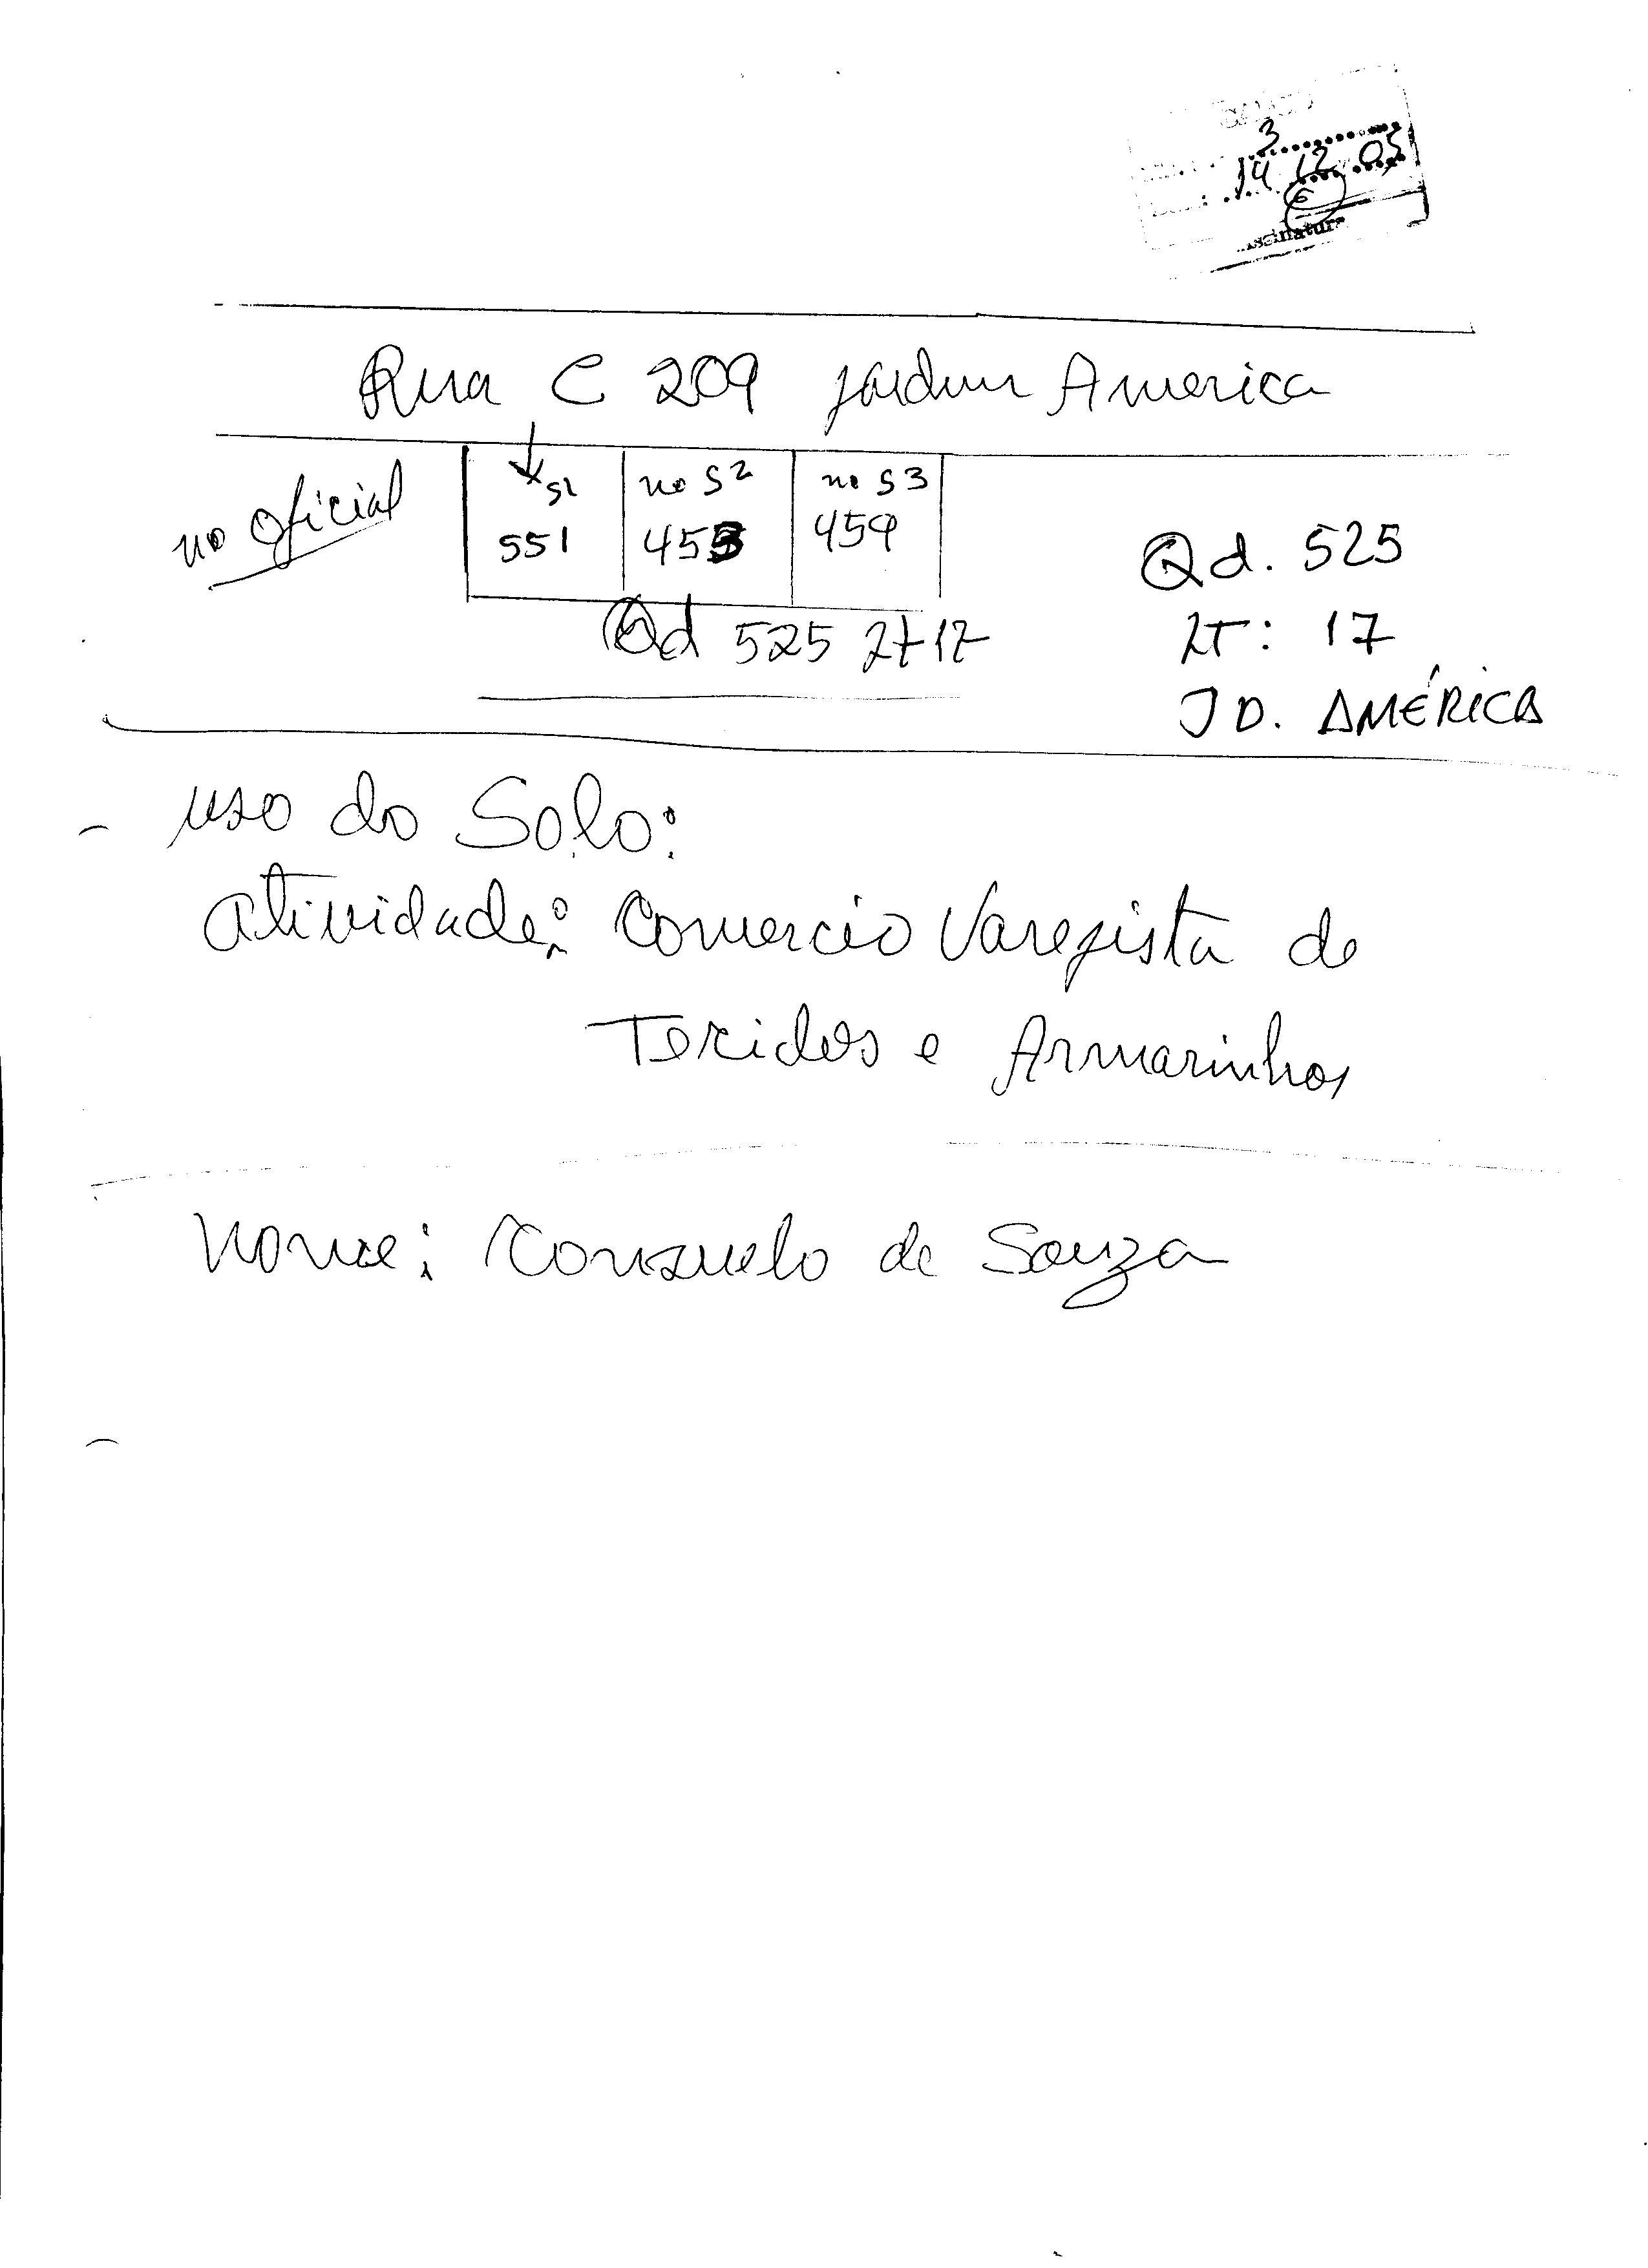 3
14 12 05
ssinatura
Rua C 209 jardim America
no Oficial
S1
551
no S2
455
no S3
459
Qd 525 Lt 17
Qd. 525
LT: 17
JD. AMÉRICA
uso do Solo:
Atividade: Comercio Varegista de
Tecidos e Armarinhos
Nome: Consuelo de Souza